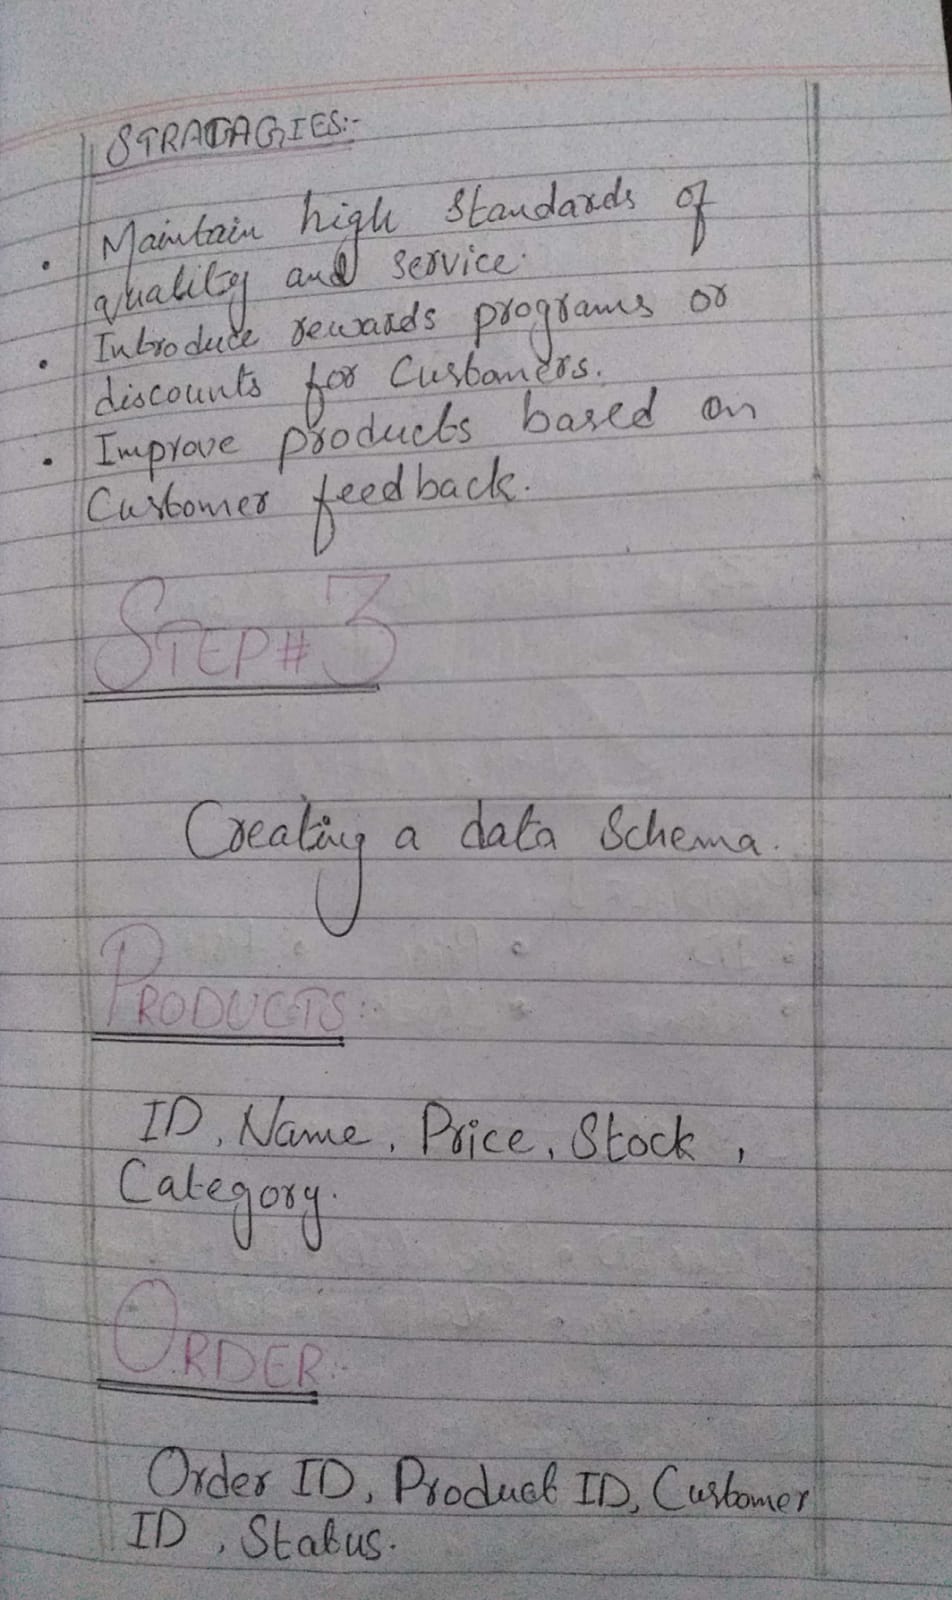 STRATAGIES:-
• Maintain high standards of
quality and service.
• Introduce rewards programs or
discounts for Customers.
• Improve products based on
Customer feedback.
STEP# 3
Creating a data Schema.
PRODUCTS:-
ID, Name, Price, Stock,
Category.
ORDER:-
Order ID, Product ID, Customer
ID, Status.